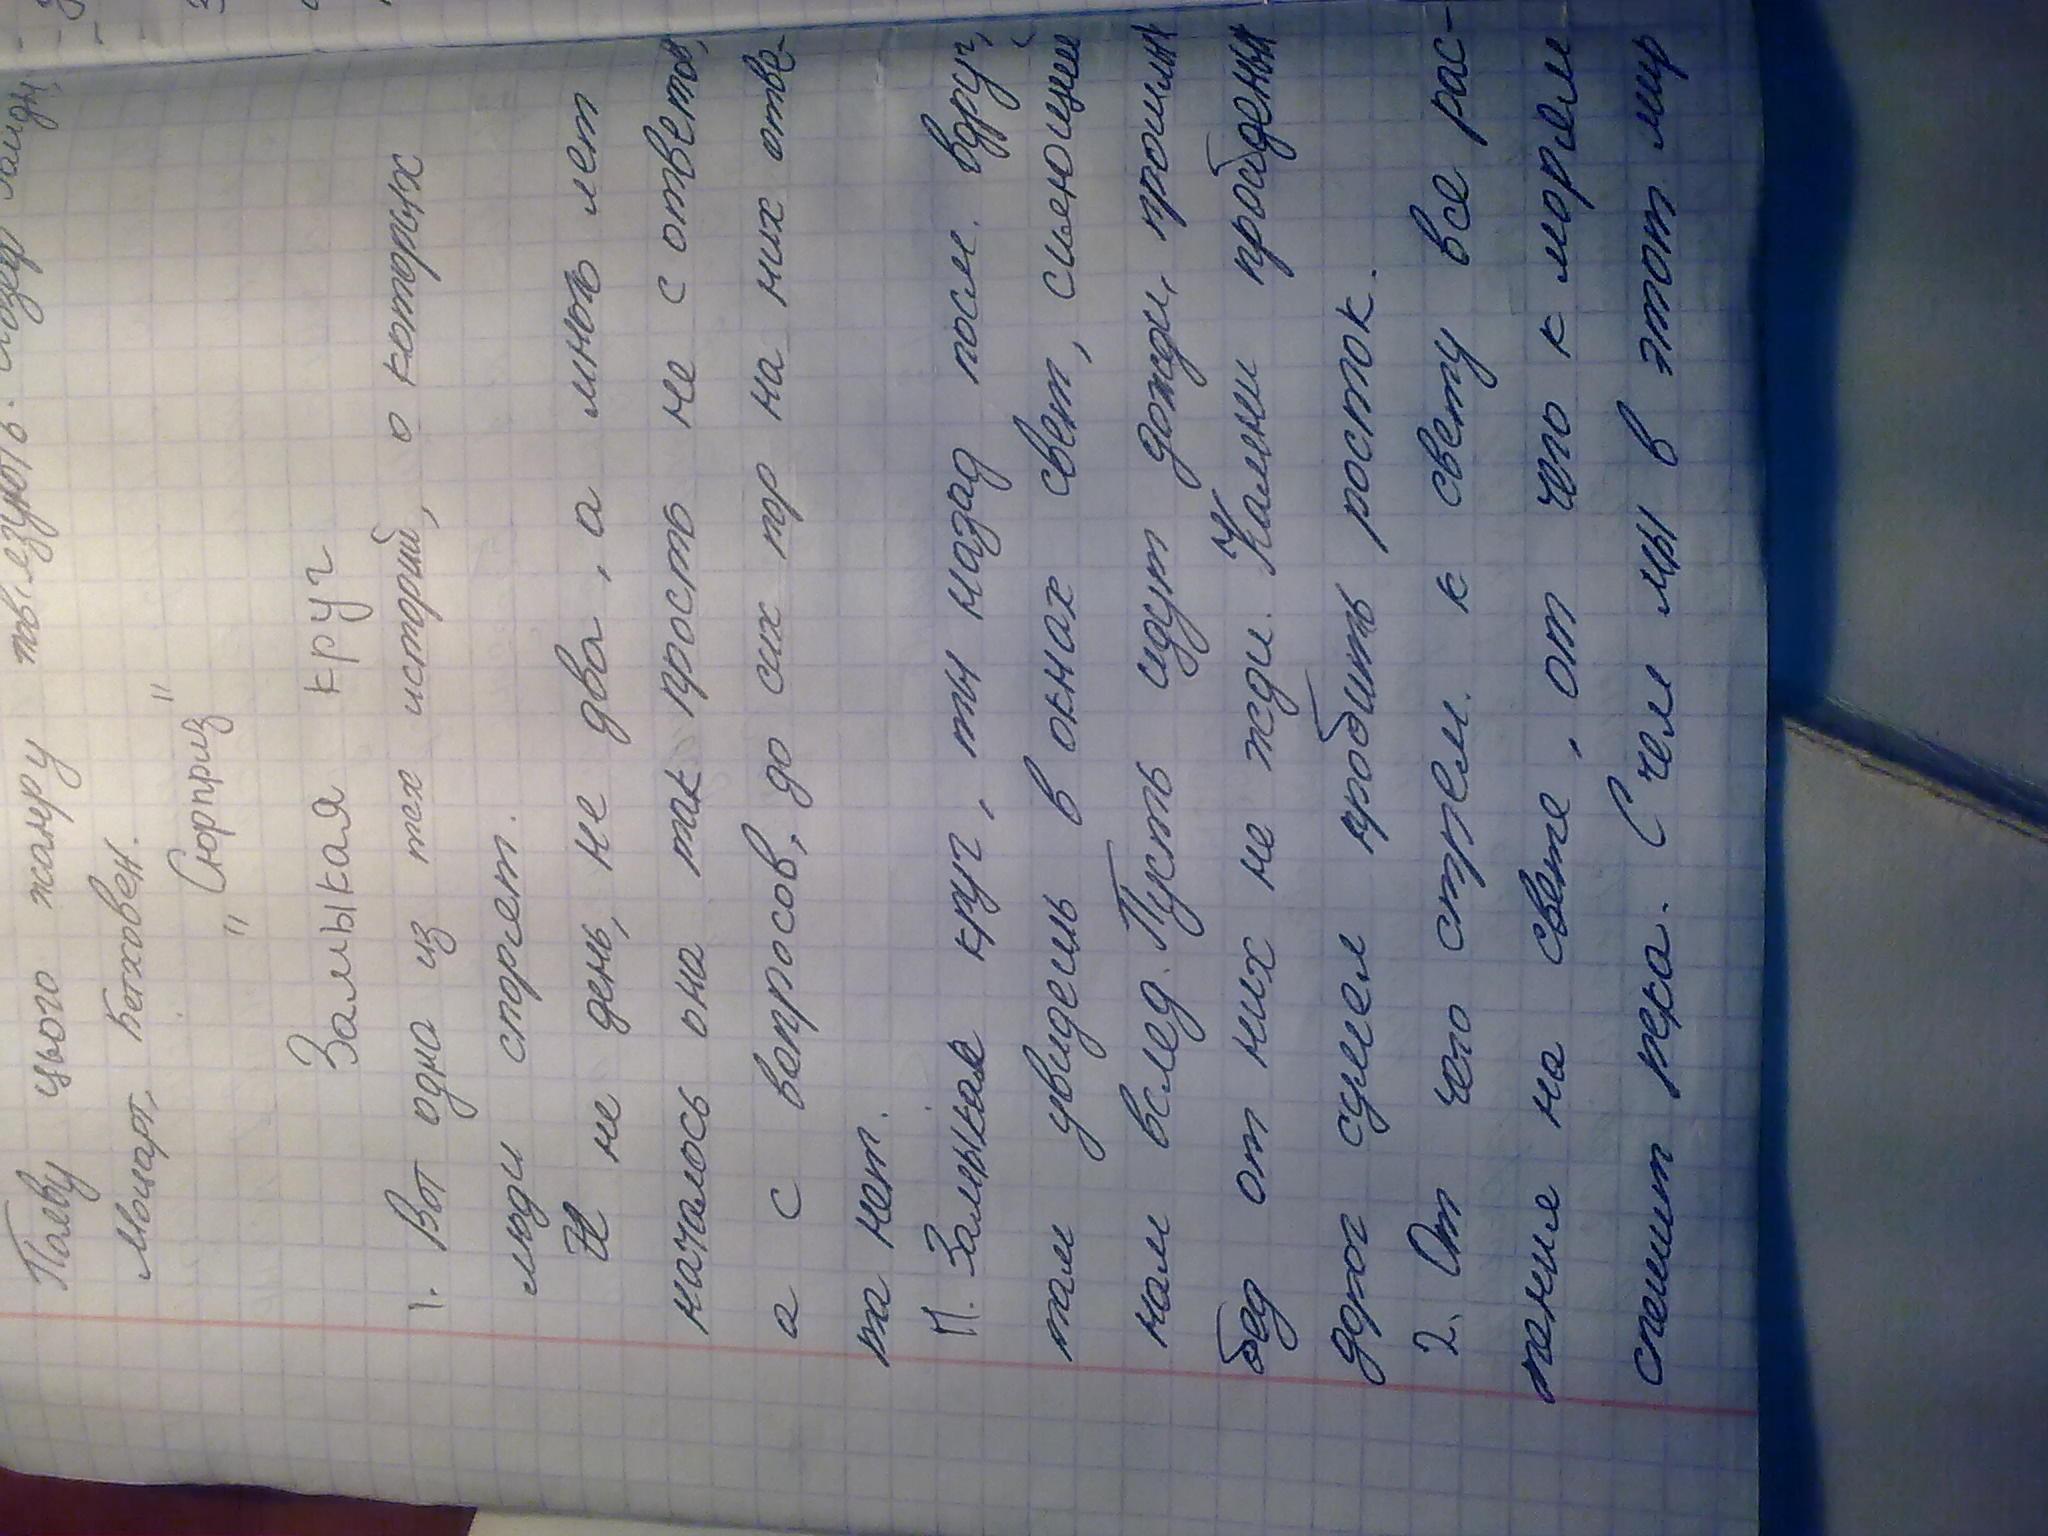 Появу цього жанру пов'язують.
Моцарт, Бетховен.
"Сюрприз"
Замыкая круг
1. Вот одна из тех историй, о которых
люди спорят.
И не день, не два, а много лет
началось она так просто не с ответов,
а с вопросов, до сих пор на них отве-
та нет.
П. Замыкая круг, ты назад посм. вдруг,
там увидешь в окнах свет, сияющий
нам вслед. Пусть идут дожди, прошлых
бед от них не жди. Камни пройденых
дорог сумел пробить росток.
2. От чего стрем. к свету все рас-
тения на свете, от чего к морям
спешит река. С чем мы в этот мир